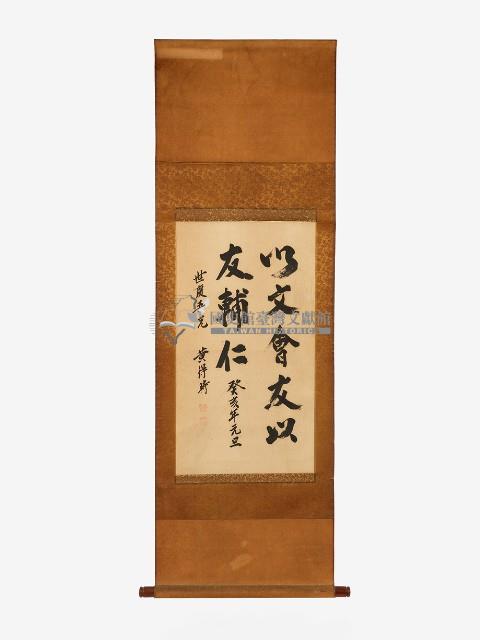 以文會友以
友輔仁
癸亥年元旦
黃得時
國史館臺灣文獻館
TAIWAN HISTORICA